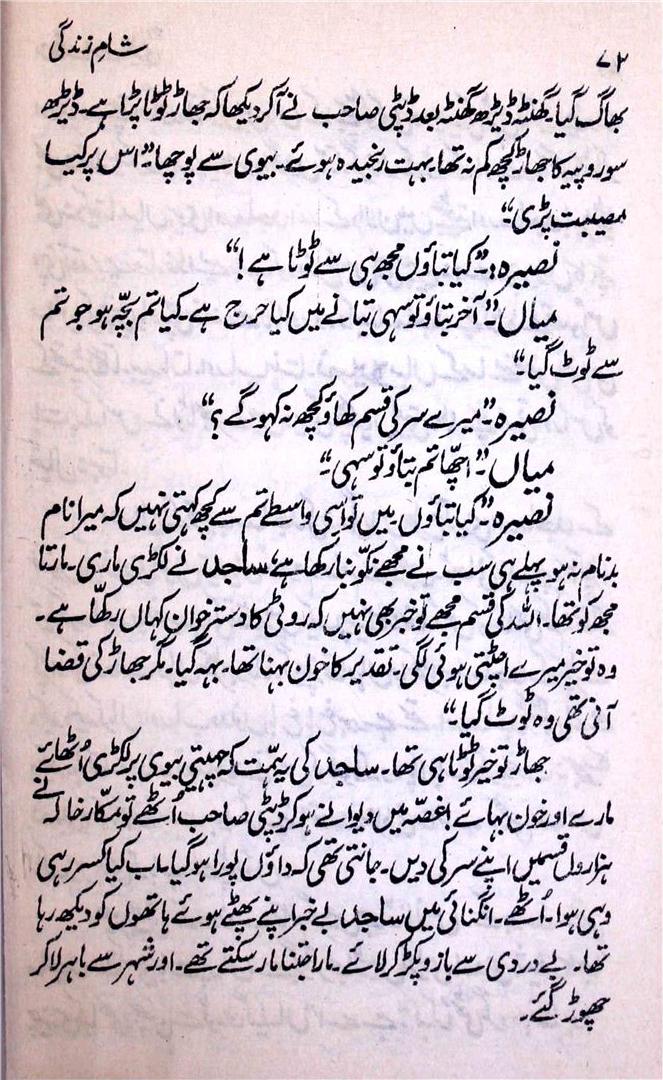 ۷۲
شامِ زندگی
بھاگ گیا۔ گھنٹہ ڈیڑھ گھنٹہ بعد ڈپٹی صاحب نے آکر دیکھا کہ جھاڑ ٹوٹا پڑا ہے۔ ڈیڑھ
سو روپیہ کا جھاڑ کچھ کم نہ تھا۔ بہت رنجیدہ ہوئے۔ بیوی سے پوچھا۔ "اس پر کیا
مصیبت پڑی"
نصیرہ:۔ "کیا بتاؤں مجھ ہی سے ٹوٹا ہے!"
میاں۔ "آخر بتاؤ تو سہی بتانے میں کیا حرج ہے۔ کیا تم بچّہ ہو جو تم
سے ٹوٹ گیا"
نصیرہ۔ "میرے سر کی قسم کھاؤ کچھ نہ کہو گے؟"
میاں۔ "اچّھا تم بتاؤ تو سہی"
نصیرہ۔ "کیا بتاؤں میں تو اسِی واسطے تم سے کچھ کہتی نہیں کہ میرا نام
بدنام نہ ہو پہلے ہی سب نے مجھے نکّو بنا رکھا ہے، ساجد نے لکڑی ماری۔ مارتا
مجھ کو تھا۔ اللہ کی قسم مجھے تو خبر بھی نہیں کہ روٹی کا دسترخوان کہاں رکھّا ہے۔
وہ تو خیر میرے اچٹتی ہوئی لگی۔ تقدیر کا خون بہنا تھا۔ بہہ گیا۔ مگر جھاڑ کی قضا
آنی تھی وہ ٹوٹ گیا۔"
جھاڑ تو خیر ٹوٹا ہی تھا۔ ساجد کی یہ ہمّت کہ چہیتی بیوی پر لکڑی اُٹھائے
مارے اور خون بہائے! غصّہ میں دیوانے ہو کر ڈپٹی صاحب اُٹھے تو مکّار خالہ نے
ہزاروں قسمیں اپنے سر کی دیں۔ جانتی تھی کہ داؤں پورا ہو گیا۔ اب کیا کسر رہی
وہی ہوا۔ اُٹھے۔ انگنائی میں ساجد بے خبر اپنے پھٹے ہوئے ہاتھوں کو دیکھ رہا
تھا۔ بے دردی سے بازو پکڑ کر لائے۔ مارا جتنا مار سکتے تھے۔ اور شہر سے باہر لا کر
چھوڑ گئے۔